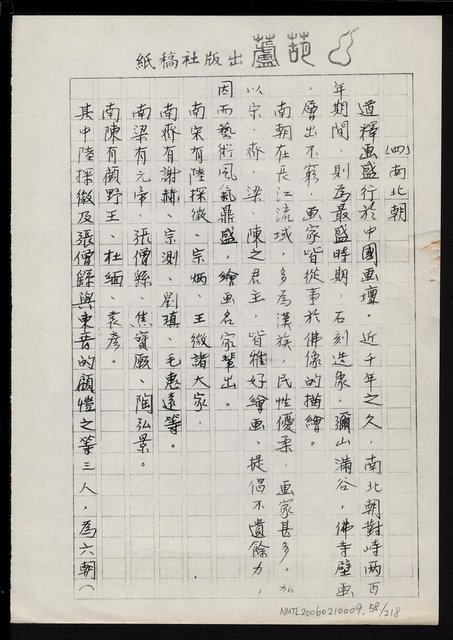 紙稿社版出蘆葫
(四)南北朝
道釋画盛行於中國画壇。近千年之久,南北朝對峙兩百
年期間,則為最盛時期,石刻造象,彌山滿谷,佛寺壁画
,層出不窮,画家皆從事於佛像的描繪。
南朝在長江流域,多為漢族,民性優柔,画家甚多,加
以宋、齊、梁、陳之君主,皆雅好繪画、提倡不遺餘力,
因而藝術風氣鼎盛,繪画名家輩出。
南宋有陸探微、宗炳、王微諸大家.
南齊有謝赫、宗測、劉瑱、毛惠遠等。
南梁有元帝、張僧繇、焦寶願、陶弘景。
南陳有顧野王、杜緬、袁彥。
其中陸探微及張僧繇與東晉的顧愷之等三人,為六朝(
NMTL20060210009. 58/218